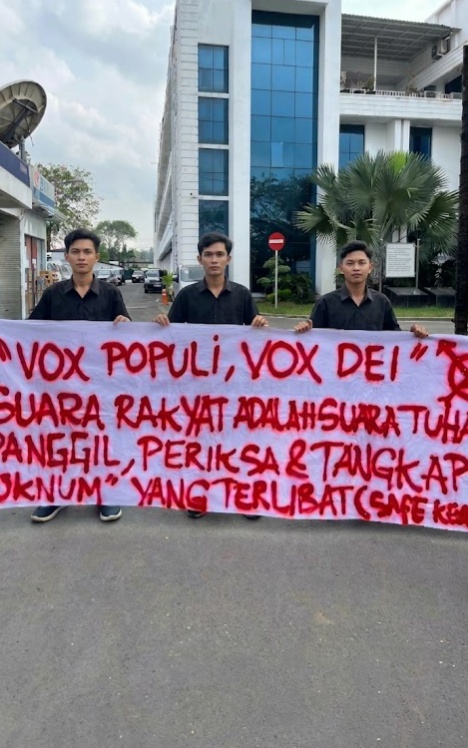 "VOX POPULI, VOX DEI"
SUARA RAKYAT ADALAH SUARA TUHA
PANGGIL, PERIKSA & TANGKAP
OKNUM" YANG TERLIBAT (SAFE